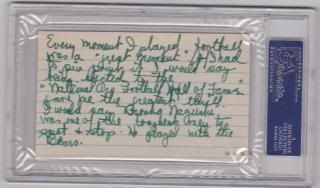 Every moment I played football
was a great moment. If I had
to pin point it I would say
being elected to the
"National Pro Football Hall of Fame
gave me the greatest thrill.
I would say Bronko Nagurski
was one of the toughest men to
spot & stop. He played with the
Bears.